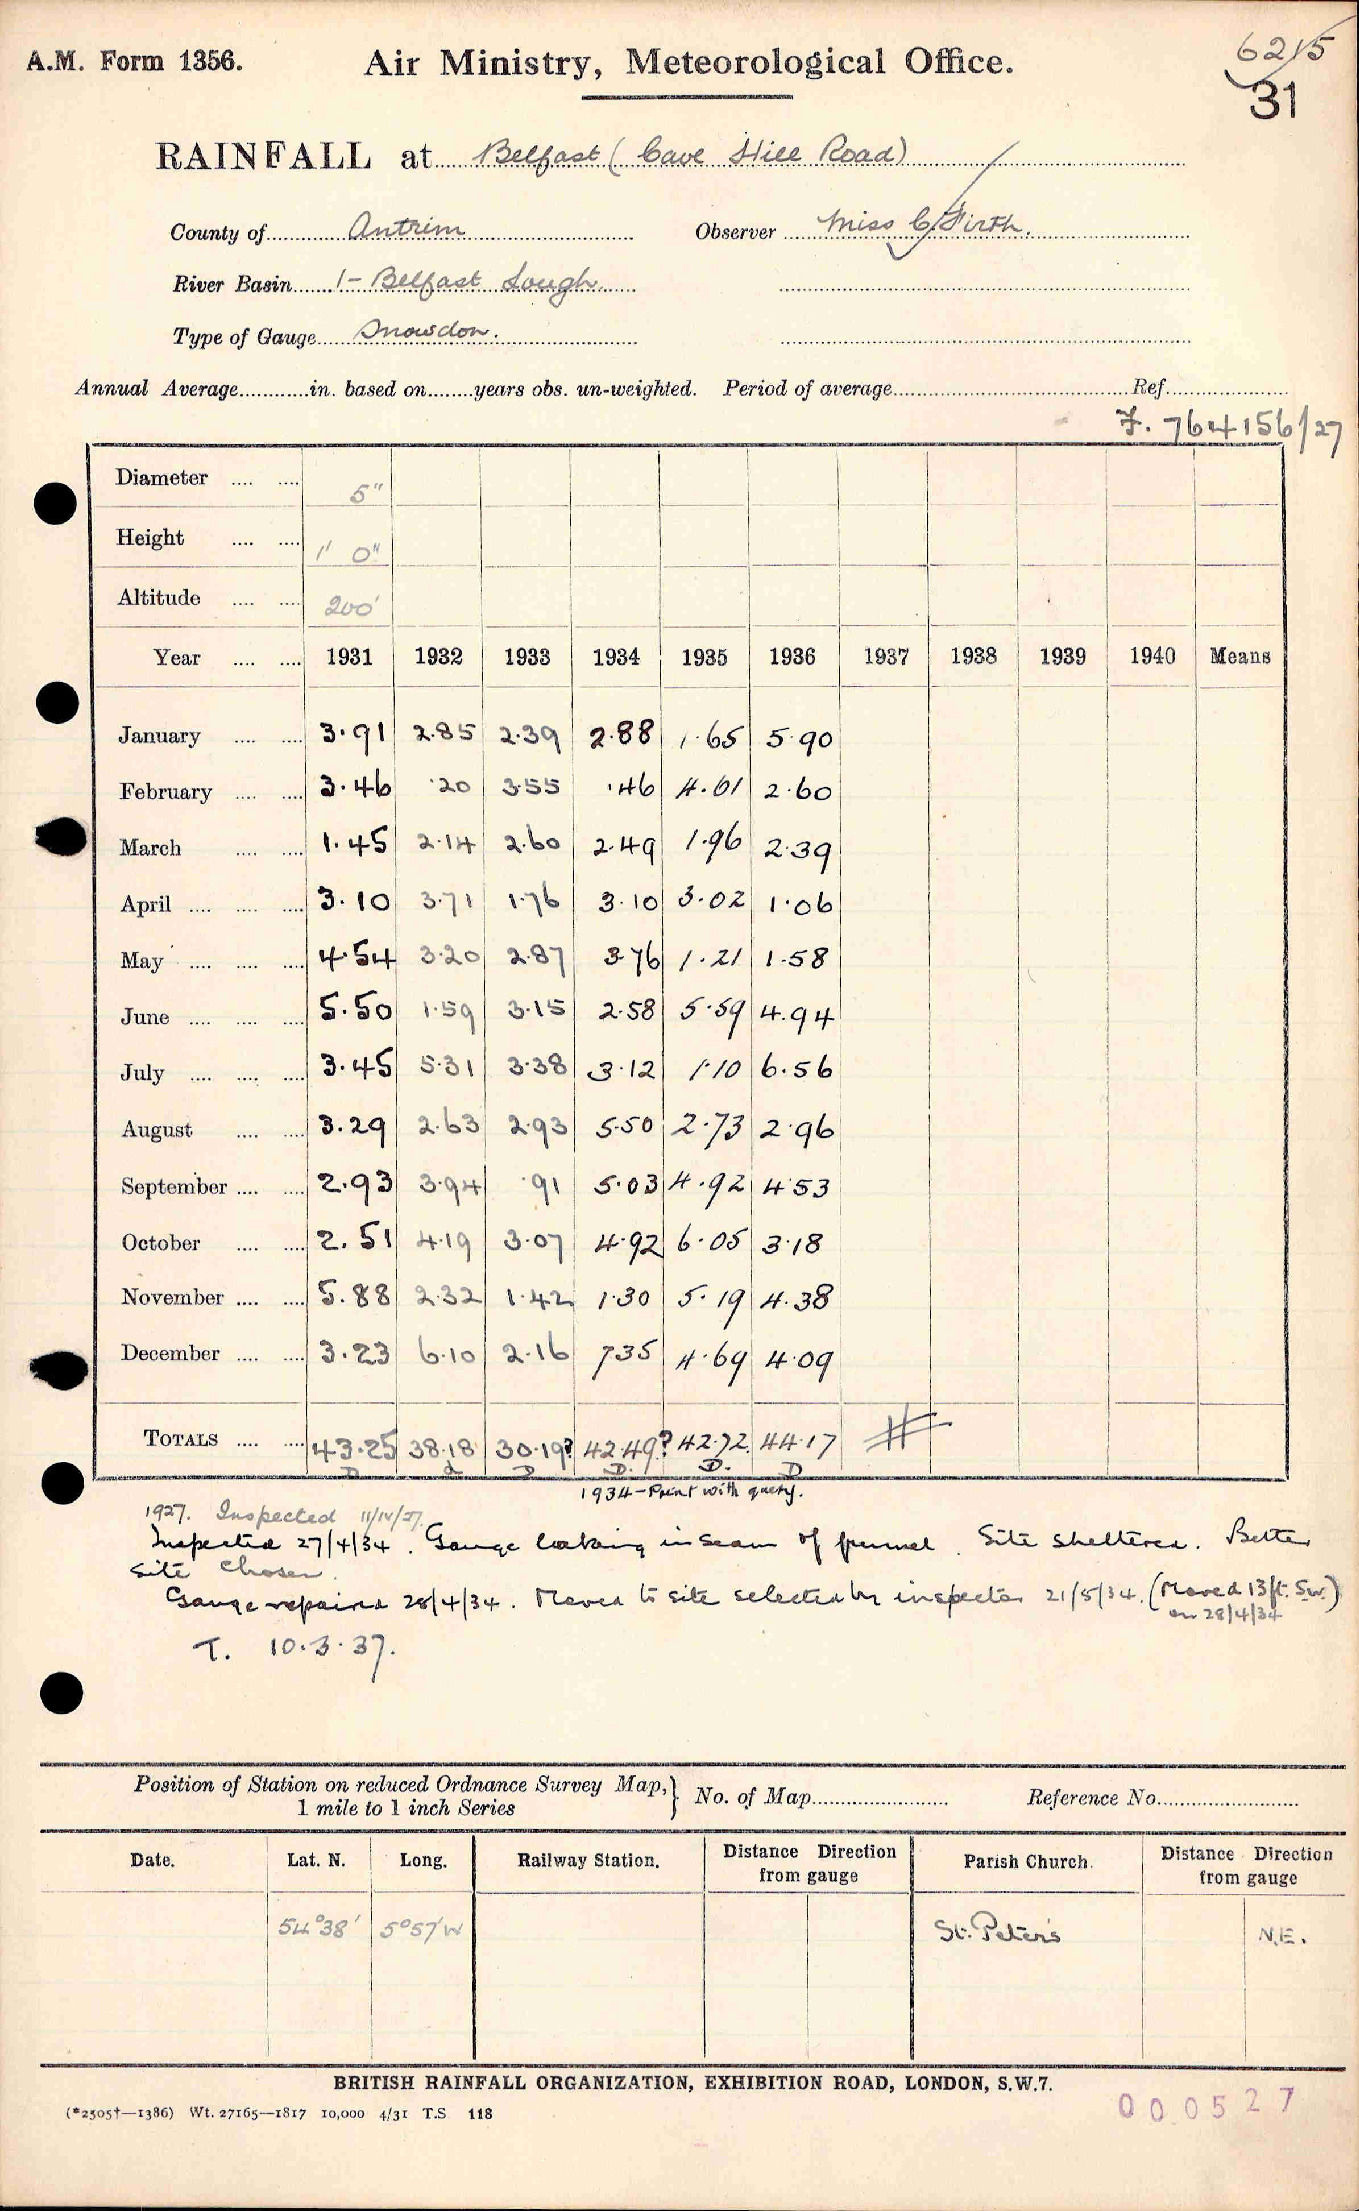 A.M. Form 1356.
Air Ministry, Meteorological Office.
6215
31
RAINFALL at Belfast (Cave Hill Road)
County of Antrim Observer Miss C. Firth.
River Basin 1 - Belfast Lough
Type of Gauge Snowdon.
Annual Average in. based on years obs. un-weighted. Period of average Ref.
F. 764156/27
Diameter 5"
Height 1' 0"
Altitude 200'
Year 1931 1932 1933 1934 1935 1936 1937 1938 1939 1940 Means
January 3.91 2.85 2.39 2.88 1.65 5.90
February 3.46 .20 3.55 .46 4.61 2.60
March 1.45 2.14 2.60 2.49 1.96 2.39
April 3.10 3.71 1.76 3.10 3.02 1.06
May 4.54 3.20 2.87 3.76 1.21 1.58
June 5.50 1.59 3.15 2.58 5.59 4.94
July 3.45 5.31 3.38 3.12 1.10 6.56
August 3.29 2.63 2.93 5.50 2.73 2.96
September 2.93 3.94 .91 5.03 4.92 4.53
October 2.51 4.19 3.07 4.92 6.05 3.18
November 5.88 2.32 1.42 1.30 5.19 4.38
December 3.23 6.10 2.16 7.35 4.69 4.09
TOTALS 43.25 38.18 30.19? 42.49? 42.72 44.17
D D D. D. D
1934 - Print with query.
1927. Inspected 11/IV/27.
Inspected 27/4/34. Gauge leaking in seam of funnel. Site sheltered. Better
site chosen.
Gauge repaired 28/4/34. Moved to site selected by inspector 21/5/34. (Moved 13ft. SW.)
on 28/4/34
T. 10.3.37.
Position of Station on reduced Ordnance Survey Map, 1 mile to 1 inch Series } No. of Map Reference No.
Date. Lat. N. Long. Railway Station. Distance Direction from gauge Parish Church. Distance Direction from gauge
54°38' 5°57'W St. Peter's N.E.
BRITISH RAINFALL ORGANIZATION, EXHIBITION ROAD, LONDON, S.W.7.
(*2505†—1386) Wt. 27165—1817 10,000 4/31 T.S 118
000527